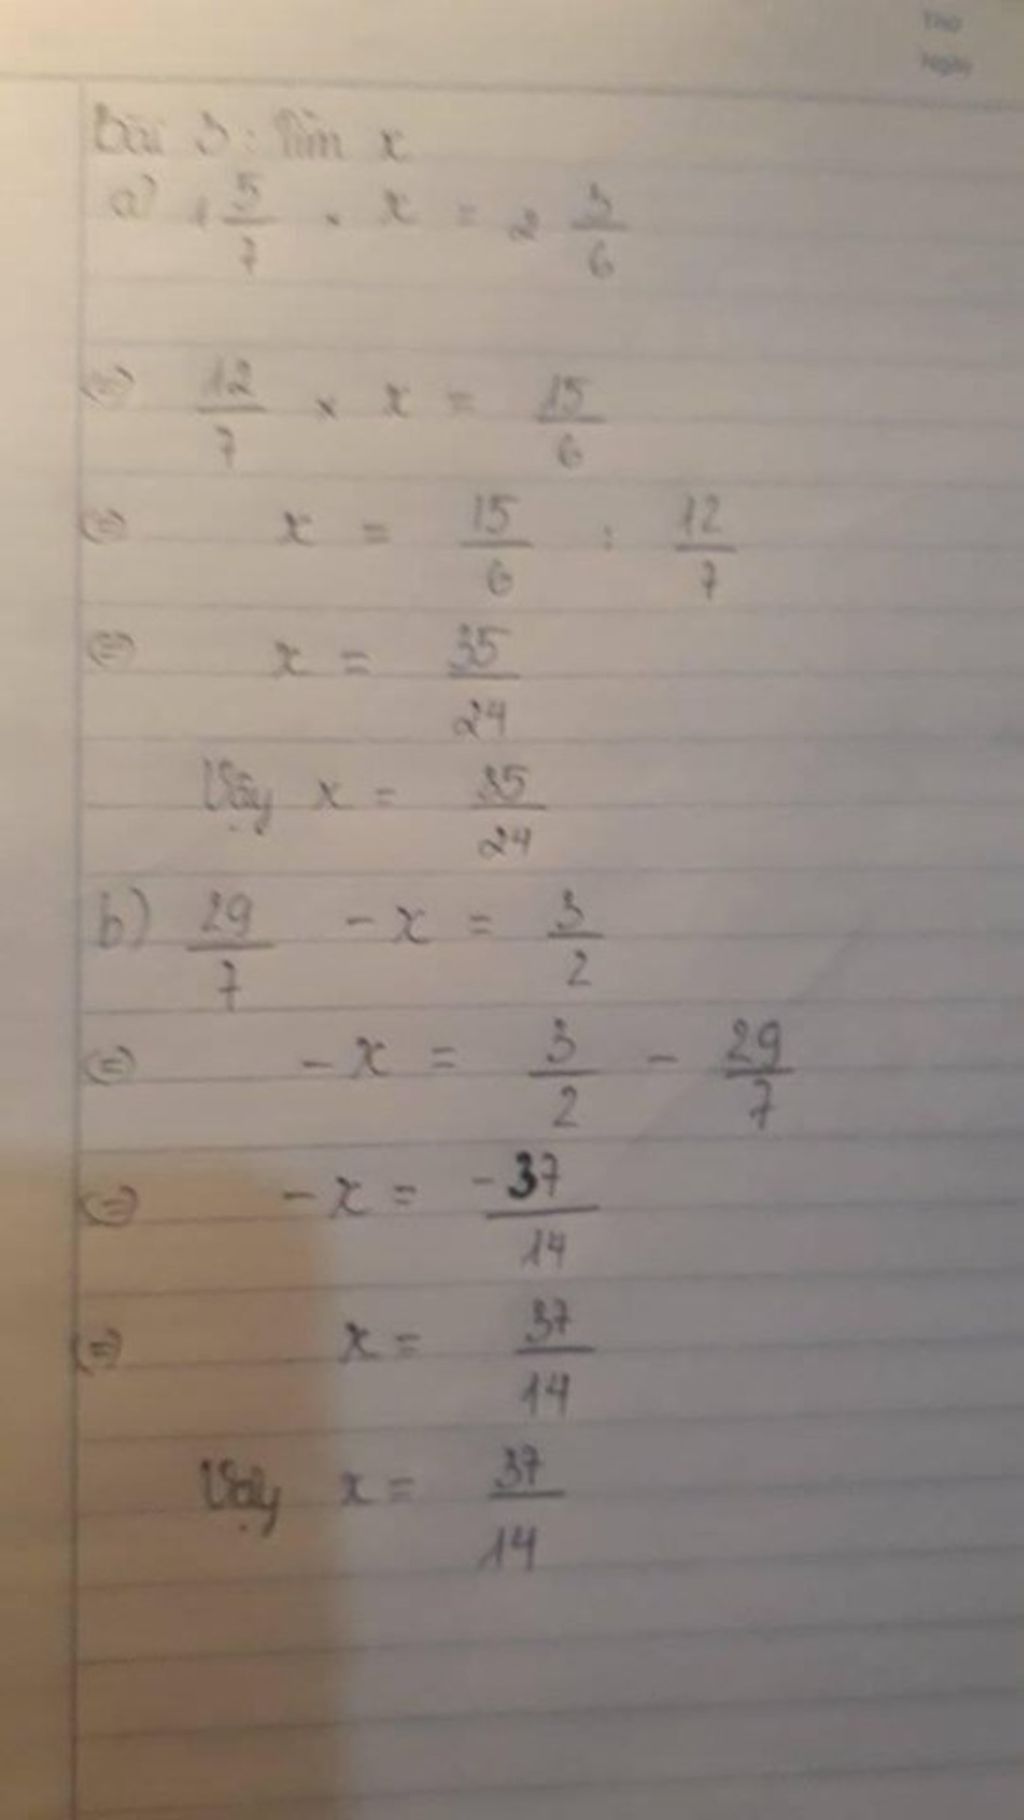 Thứ
Ngày
Bài 3: Tìm x
a) 1 5/7 . x = 2 3/6
(=) 12/7 × x = 15/6
(=) x = 15/6 : 12/7
(=) x = 35/24
Vậy x = 35/24
b) 29/7 - x = 3/2
(=) - x = 3/2 - 29/7
(=) - x = -37/14
(=) x = 37/14
Vậy x = 37/14